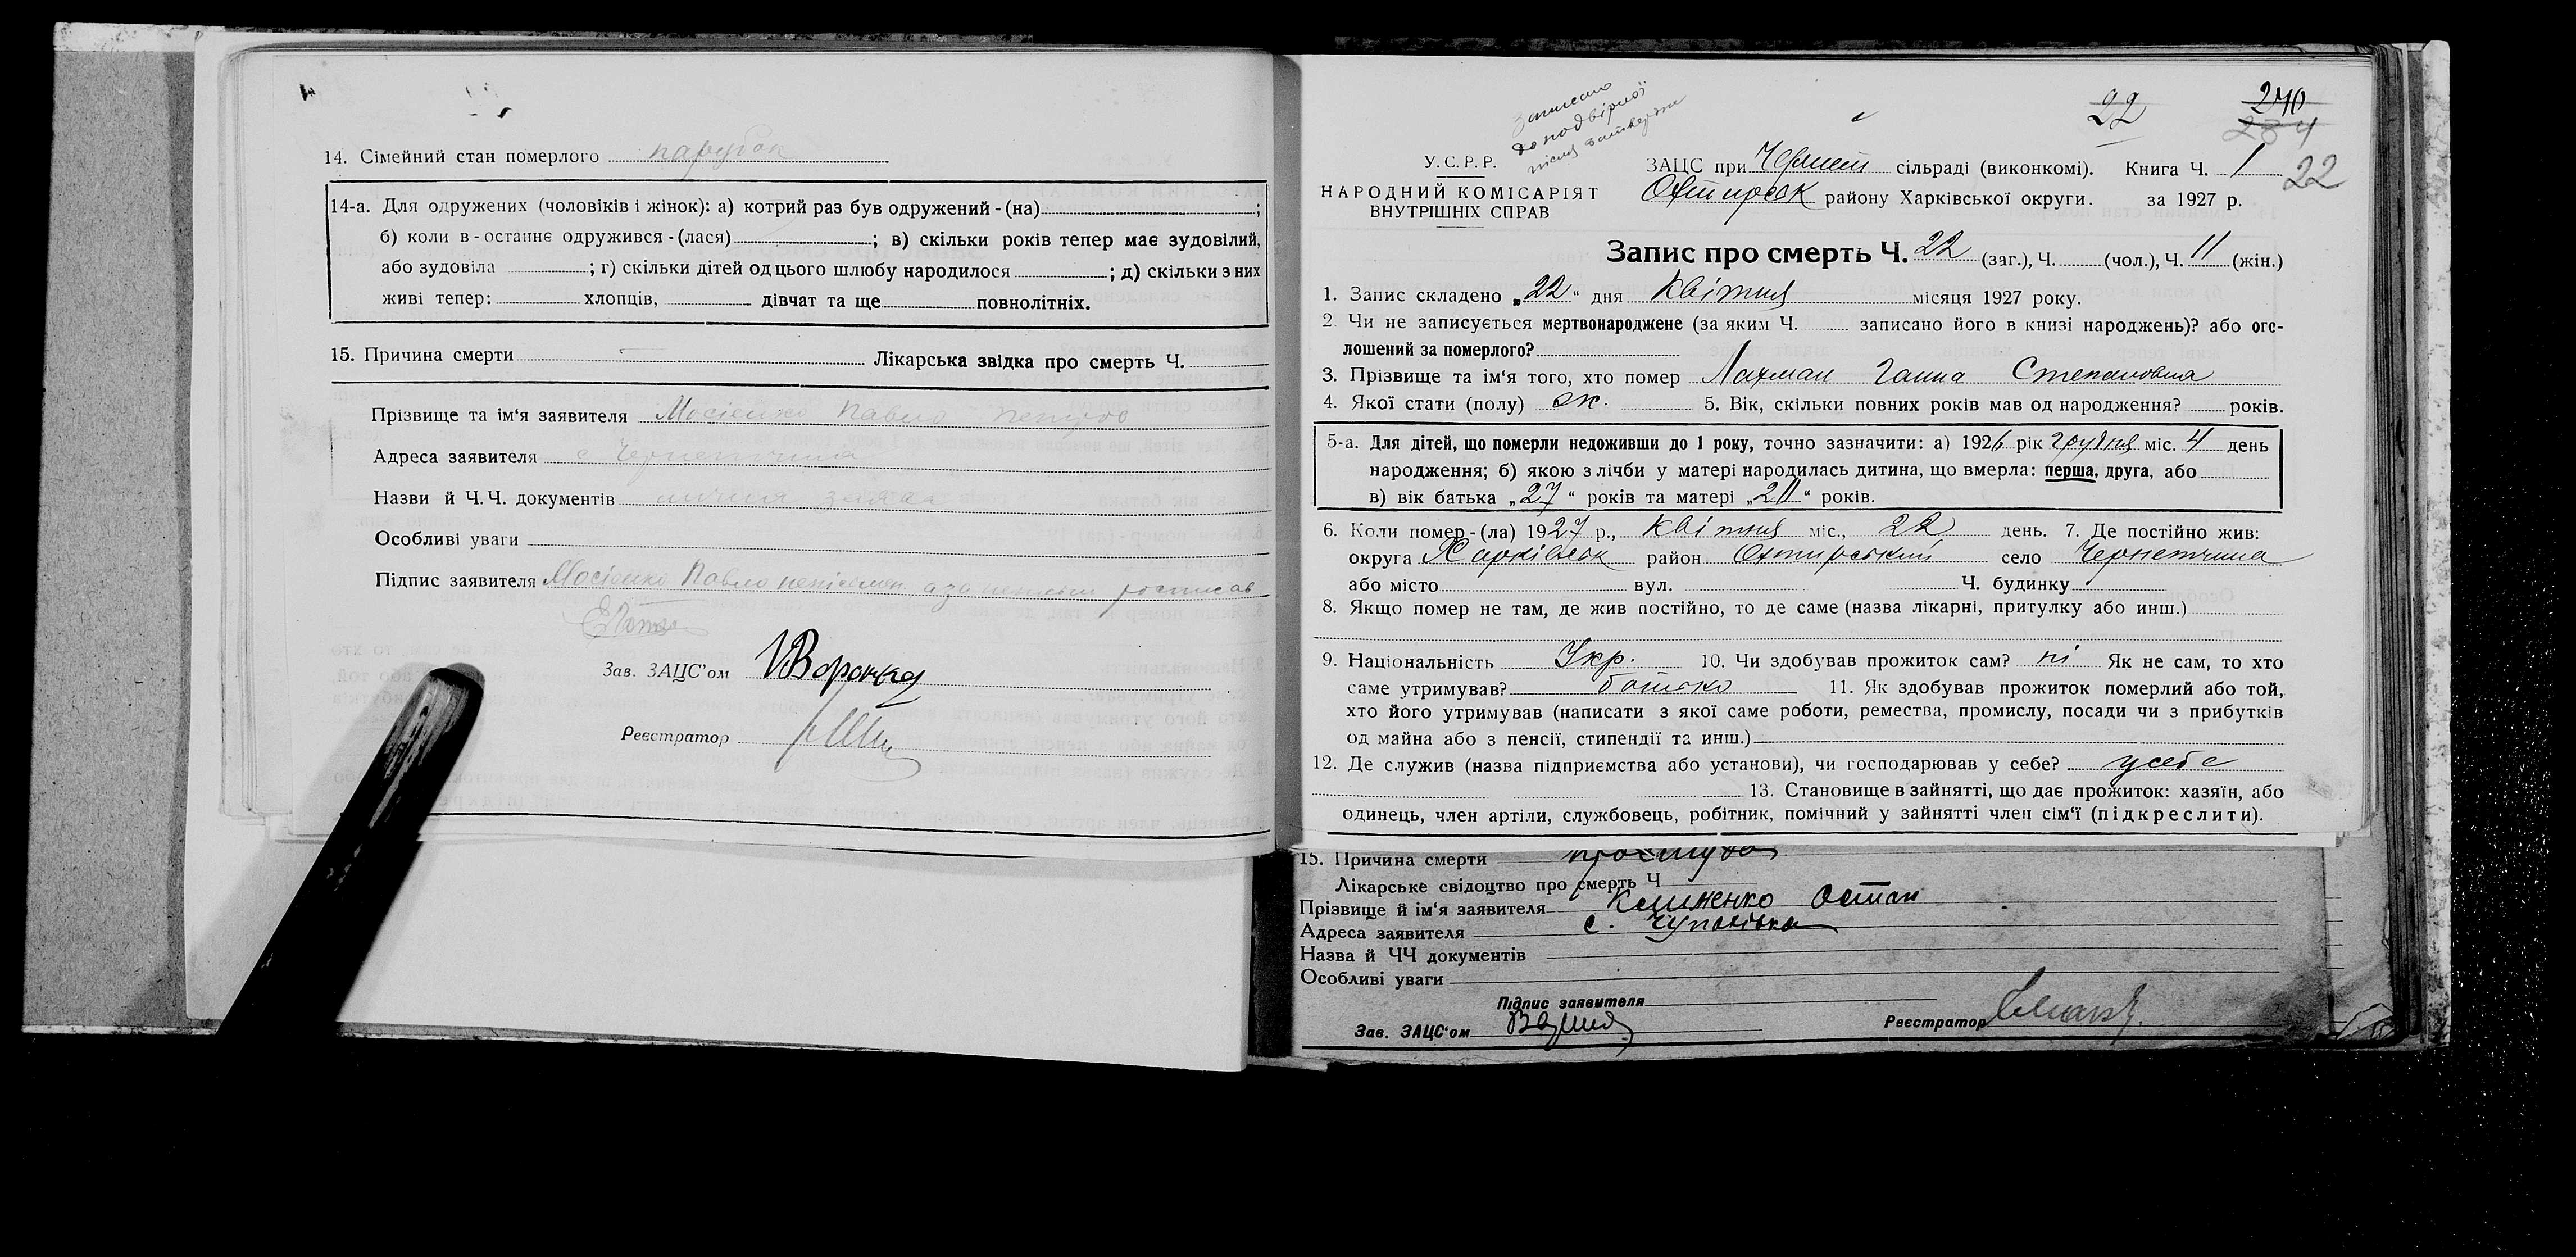 14. Сімейний стан померлого парубок
14-а. Для одружених (чоловіків і жінок): а) котрий раз був одружений - (на) ;
б) коли в - останнє одружився - (лася) ; в) скільки років тепер має зудовілий,
або зудовіла ; г) скільки дітей од цього шлюбу народилося ; д) скільки з них
живі тепер: хлопців, дівчат та ще повнолітніх.
15. Причина смерти Лікарська звідка про смерть Ч.
Прізвище та ім'я заявителя Мосієнко Павло
Адреса заявителя с Чернетчина
Назви й Ч. Ч. документів
Особливі уваги
Підпис заявителя Мосієнко Павло
Зав. ЗАЦС'ом
Реєстратор
записано
до подвірної
22 240
234
22
У. С. Р. Р.
НАРОДНИЙ КОМІСАРІЯТ
ВНУТРІШНІХ СПРАВ
ЗАЦС при Чернет сільраді (виконкомі). Книга Ч. 1
Охтирськ району Харківської округи. за 1927 р.
Запис про смерть Ч. 22 (заг.), Ч. (чол.), Ч. 11 (жін.)
1. Запис складено „22“ дня Квітня місяця 1927 року.
2. Чи не записується мертвонароджене (за яким Ч. записано його в книзі народжень)? або ого-
лошений за померлого?
3. Прізвище та ім'я того, хто помер Лахман Ганна Степановна
4. Якої стати (полу) ж. 5. Вік, скільки повних років мав од народження? років.
5-а. Для дітей, що померли недоживши до 1 року, точно зазначити: а) 1926 рік грудня міс. 4 день
народження; б) якою з лічби у матері народилась дитина, що вмерла: перша, друга, або
в) вік батька „27“ років та матері „20“ років.
6. Коли помер - (ла) 1927 р., квітня міс., 22 день. 7. Де постійно жив:
округа Харківськ район Охтирський село Чернетчина
або місто вул. Ч. будинку
8. Якщо помер не там, де жив постійно, то де саме (назва лікарні, притулку або инш.)
9. Національність Укр. 10. Чи здобував прожиток сам? ні Як не сам, то хто
саме утримував? батько 11. Як здобував прожиток померлий або той,
хто його утримував (написати з якої саме роботи, ремества, промислу, посади чи з прибутків
од майна або з пенсії, стипендії та инш.)
12. Де служив (назва підприємства або установи), чи господарював у себе? у себе
13. Становище в зайнятті, що дає прожиток: хазяїн, або
одинець, член артіли, службовець, робітник, помічний у зайнятті член сім'ї (підкреслити).
15. Причина смерти
Лікарське свідоцтво про смерть Ч
Прізвище й ім'я заявителя Клименко Остап
Адреса заявителя с. Чупахівка
Назва й ЧЧ документів
Особливі уваги
Підпис заявителя
Зав. ЗАЦС'ом Реєстратор